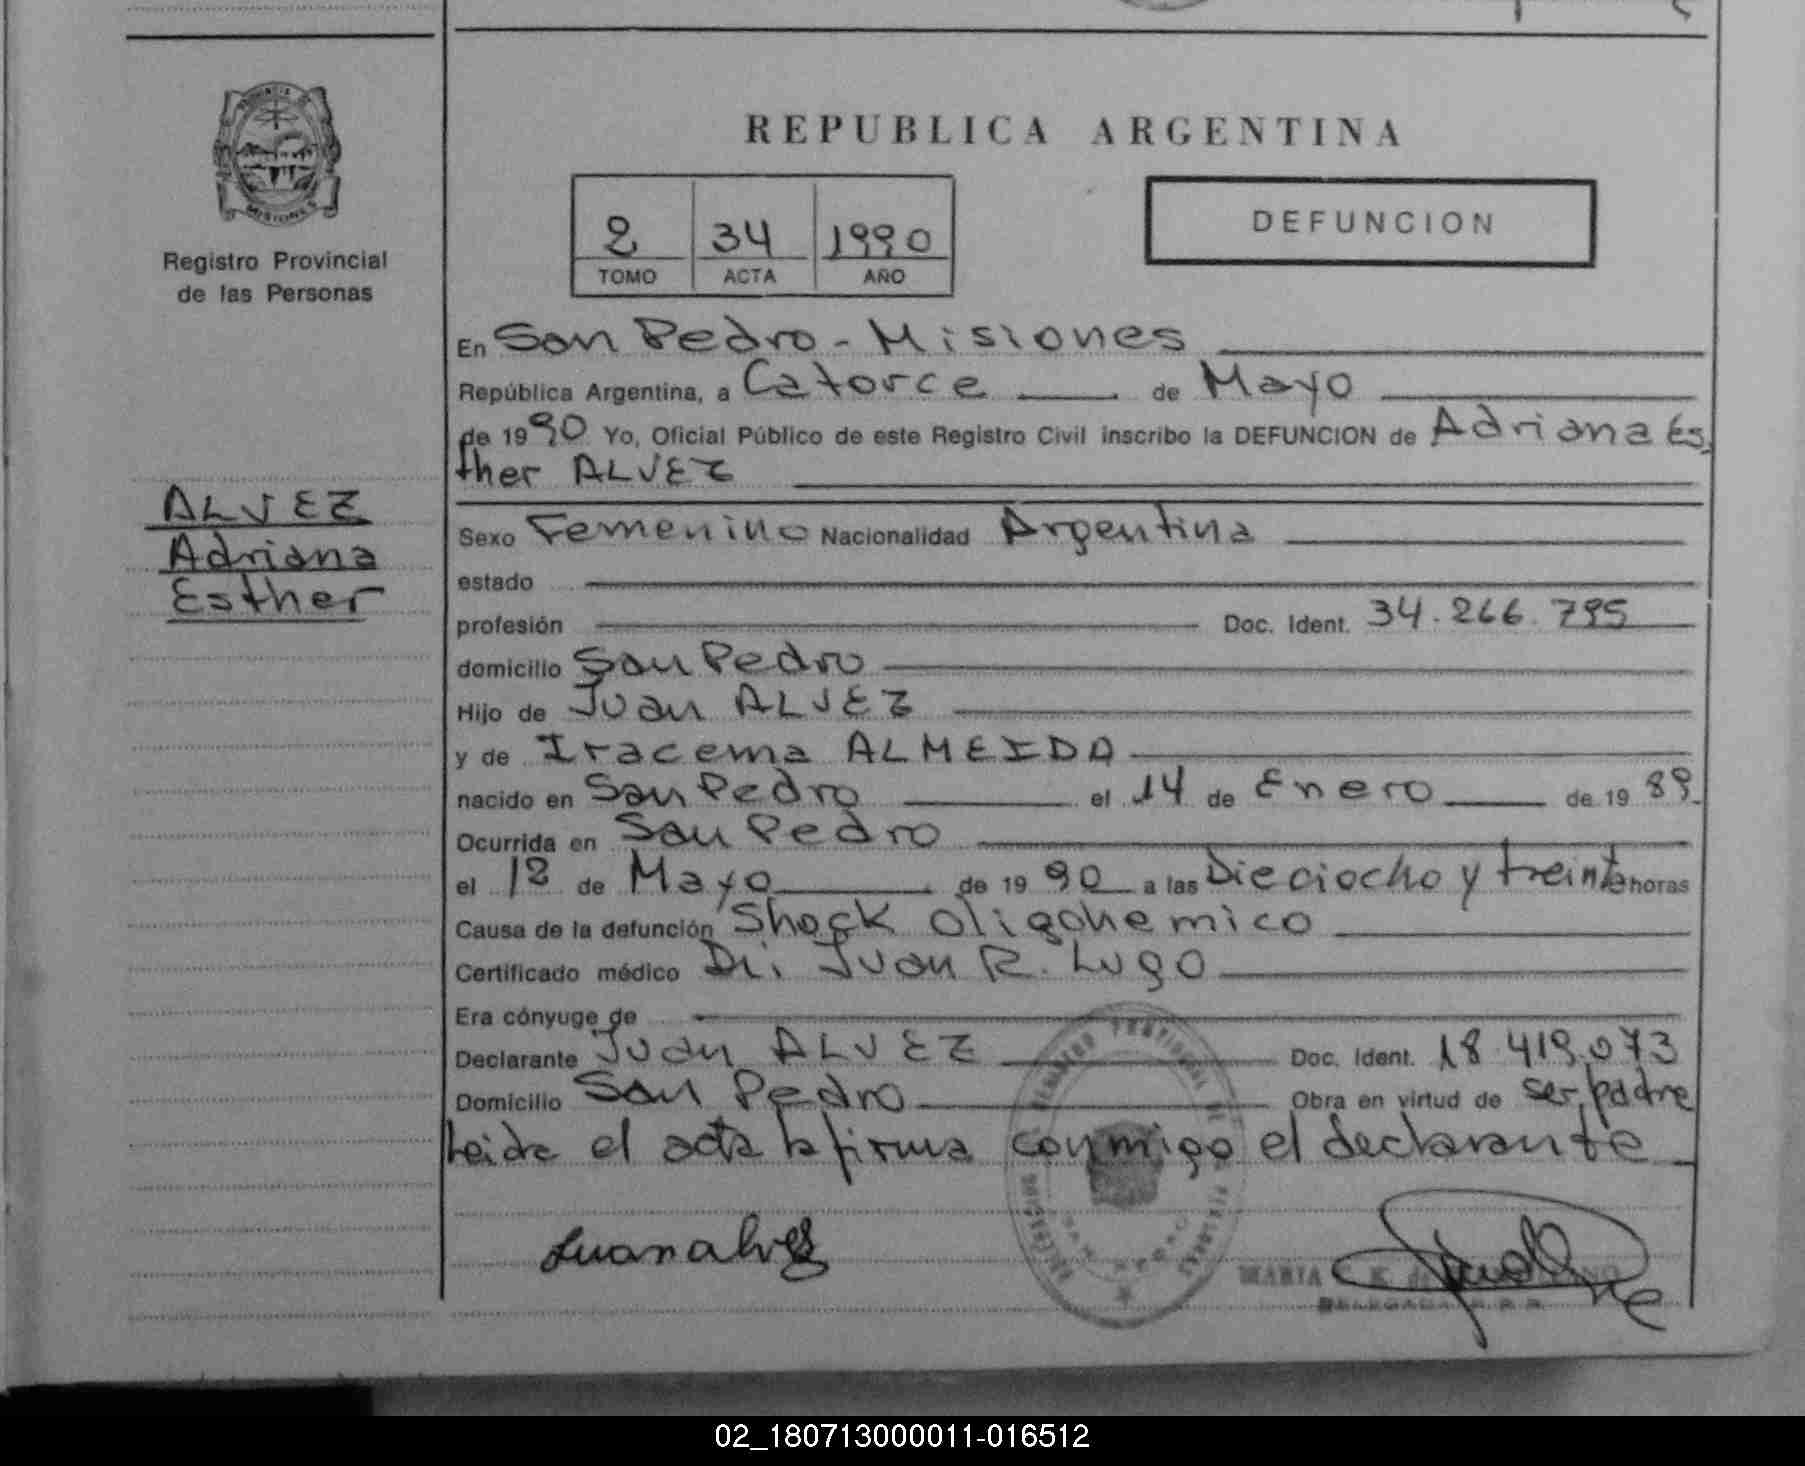 REPUBLICA ARGENTINA
Registro Provincial
de las Personas
2 34 1990
TOMO ACTA AÑO
DEFUNCION
ALVEZ
Adriana
Esther
En San Pedro - Misiones
República Argentina, a Catorce de Mayo
de 1990 Yo, Oficial Público de este Registro Civil inscribo la DEFUNCION de Adriana Es
ther ALVEZ
Sexo Femenino Nacionalidad Argentina
estado
profesión Doc. Ident. 34.266.795
domicilio San Pedro
Hijo de Juan ALVEZ
y de Iracema ALMEIDA
nacido en San Pedro el 14 de Enero de 1989
Ocurrida en San Pedro
el 12 de Mayo de 1990 a las Dieciocho y treinta horas
Causa de la defunción Shock oligohemico
Certificado médico Dr. Juan R. Lugo
Era cónyuge de
Declarante Juan ALVEZ Doc. Ident. 18.419.073
Domicilio San Pedro Obra en virtud de ser padre
Leida el acta la firma conmigo el declarante
Juan alvez
MARIA
DELEGADA
02_180713000011-016512